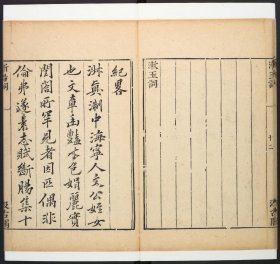 漱玉詞
紀略
淑真浙中海寧人文公姪女
也文章幽豔才色娟麗實
閨閣所罕見者因匹偶非
倫弗遂素志賦斷腸集十